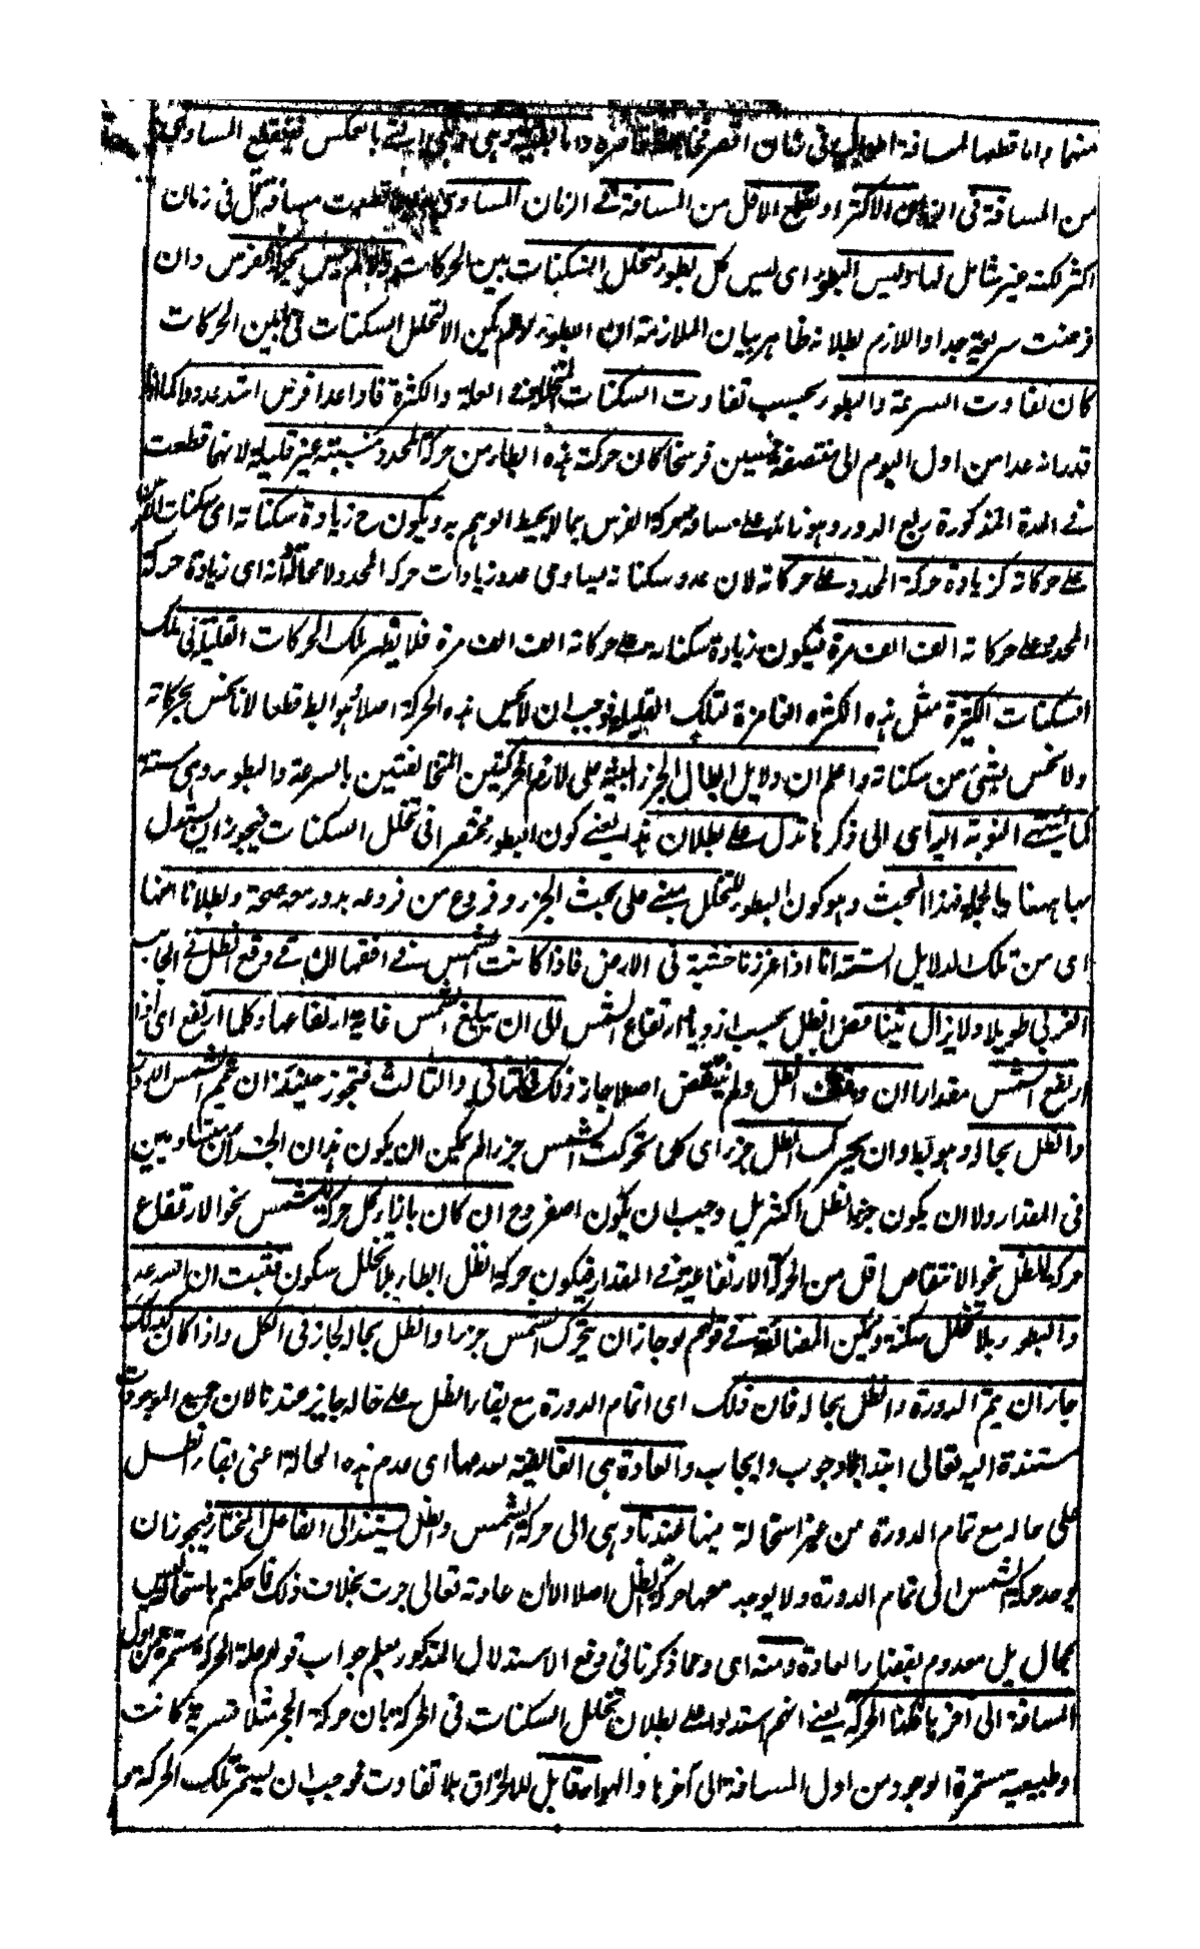 منها واما قطعها لمسافة اطول في زمان اقصر فخاصة قاصرة واما البطيئة وهي التي بالعكس فتقطع المساوي
من المسافة في الزمان الاكثر او تقطع الاقل من المسافة في الزمان المساوي قطعت مسافة اقل في زمان
اكثر لكنه غير شامل لها وليس البطوء اى ليس كل بطوء لتخلل السكنات بين الحركات والا لم يحس بحركة الفرس وان
فرضت سريعة جدا واللازم بطلانه ظاهر بيان الملازمة ان البطوء لو لم يكن الا لتخلل السكنات فيما بين الحركات
كان تفاوت السرعة والبطوء بحسب تفاوت السكنات المتخللة في القلة والكثرة فاذا عدا فرس اشد عدوه كما اذا
قدرانه عدا من اول اليوم الى منتصفه خمسين فرسخا كان حركته هذه ابطا من حركة المحدد بنسبة غير قليلة لانها قطعت
في المدة المذكورة ربع الدور وهو زائد على مسافة حركة الفرس بما لا يحيط الوهم به ويكون ح زيادة سكناته اى سكنات الفرس
على حركاته كزيادة حركة المحدد على حركاته لان عدد سكناته يساوى عدد زيادات حركة المحدد لا محالة وانه اى زيادة حركة
المحدد على حركاته الف الف مرة فيكون زيادة سكناته على حركاته الف الف مرة فلا يظهر تلك الحركات القليلة في تلك
السكنات الكثيرة مثل هذه الكثرة الغامرة لتلك القليلة فوجب ان لا يحس هذه الحركة اصلا وهو باطل قطعا لانا نحس بحركاته
ولا نحس بشئ من سكناته واعلم ان دلايل ابطال الجزء المبنية على تلازم الحركتين المختلفتين بالسرعة والبطوء وهى ستة
كما ينتهى النوبة اليه اى الى ذكرها تدل على بطلان هذا يعنى كون البطوء منحصرا فى تخلل السكنات فيجوز ان يستدل
بها ههنا وبالجملة فهذا البحث وهو كون البطوء للتخلل مبنى على بحث الجزء وفرع من فروعه يدور معه صحة وبطلانا منها
اى من تلك الدلايل الستة انا اذا غرزنا خشبة فى الارض فاذا كانت الشمس فى افقها الشرقى وقع الظل فى الجانب
الغربى طويلا ولا يزال يتناقص الظل بحسب ازدياد ارتفاع الشمس الى ان يبلغ الشمس غاية ارتفاعها وكلما ارتفع اى اذا
ارتفع الشمس مقدارا ان وقف الظل ولم ينتقص اصلا جاز ذلك فى الثانى والثالث فيجوز حينئذ ان يتم الشمس الدورة
والظل بحاله وهو بط وان يحرك الظل جزء اى كلما تحركت الشمس جزء لم يكن ان يكون هذان الجزءان متساويين
فى المقدار ولا ان يكون جزء الظل اكثر بل وجب ان يكون اصغر وح ان كان بازاء كل حركة للشمس نحو الارتفاع
حركة للظل نحو الانتقاص اقل من الحركة الارتفاعية فى المقدار فيكون حركة الظل ابطا بلا تخلل سكون فثبت ان السرعة
والبطوء بلا تخلل سكنة ولكن المضائقة فى قولهم لو جاز ان يتحرك الشمس جزء والظل بحاله لجاز فى الكل واذا كان كذلك
جاز ان يتم الدورة والظل بحاله فان ذلك اى اتمام الدورة مع بقاء الظل على حاله جايز عندنا لان جميع الموجودات
مستندة اليه تعالى ابتداء بلا وجوب وايجاب والعادة هى القاضية بعدمها اى عدم هذه الحالة اعنى بقاء الظل
على حاله مع تمام الدورة من غير استحالة فيها عندنا وهى الى حركة الشمس والظل يستند الى الفاعل المختار فيجوز ان
يوجد حركة الشمس الى تمام الدورة ولا يوجد معها حركة الظل اصلا الا ان عادته تعالى جرت بخلاف ذلك فاحكم باستحالته ليس
بمحال بل معدوم بقضاء العادة ومنه اى ومما ذكرنا فى دفع الاستدلال المذكور يعلم جواب قولهم علة الحركة مستمرة من اول
المسافة الى آخرها فكذا الحركة يعنى انهم استدلوا على بطلان تخلل السكنات فى الحركة بان حركة الحجر مثلا قسرية كانت
او طبيعية مستمرة الوجود من اول المسافة الى آخرها والهواء قابل للانخراق بلا تفاوت فوجب ان يستمر تلك الحركة